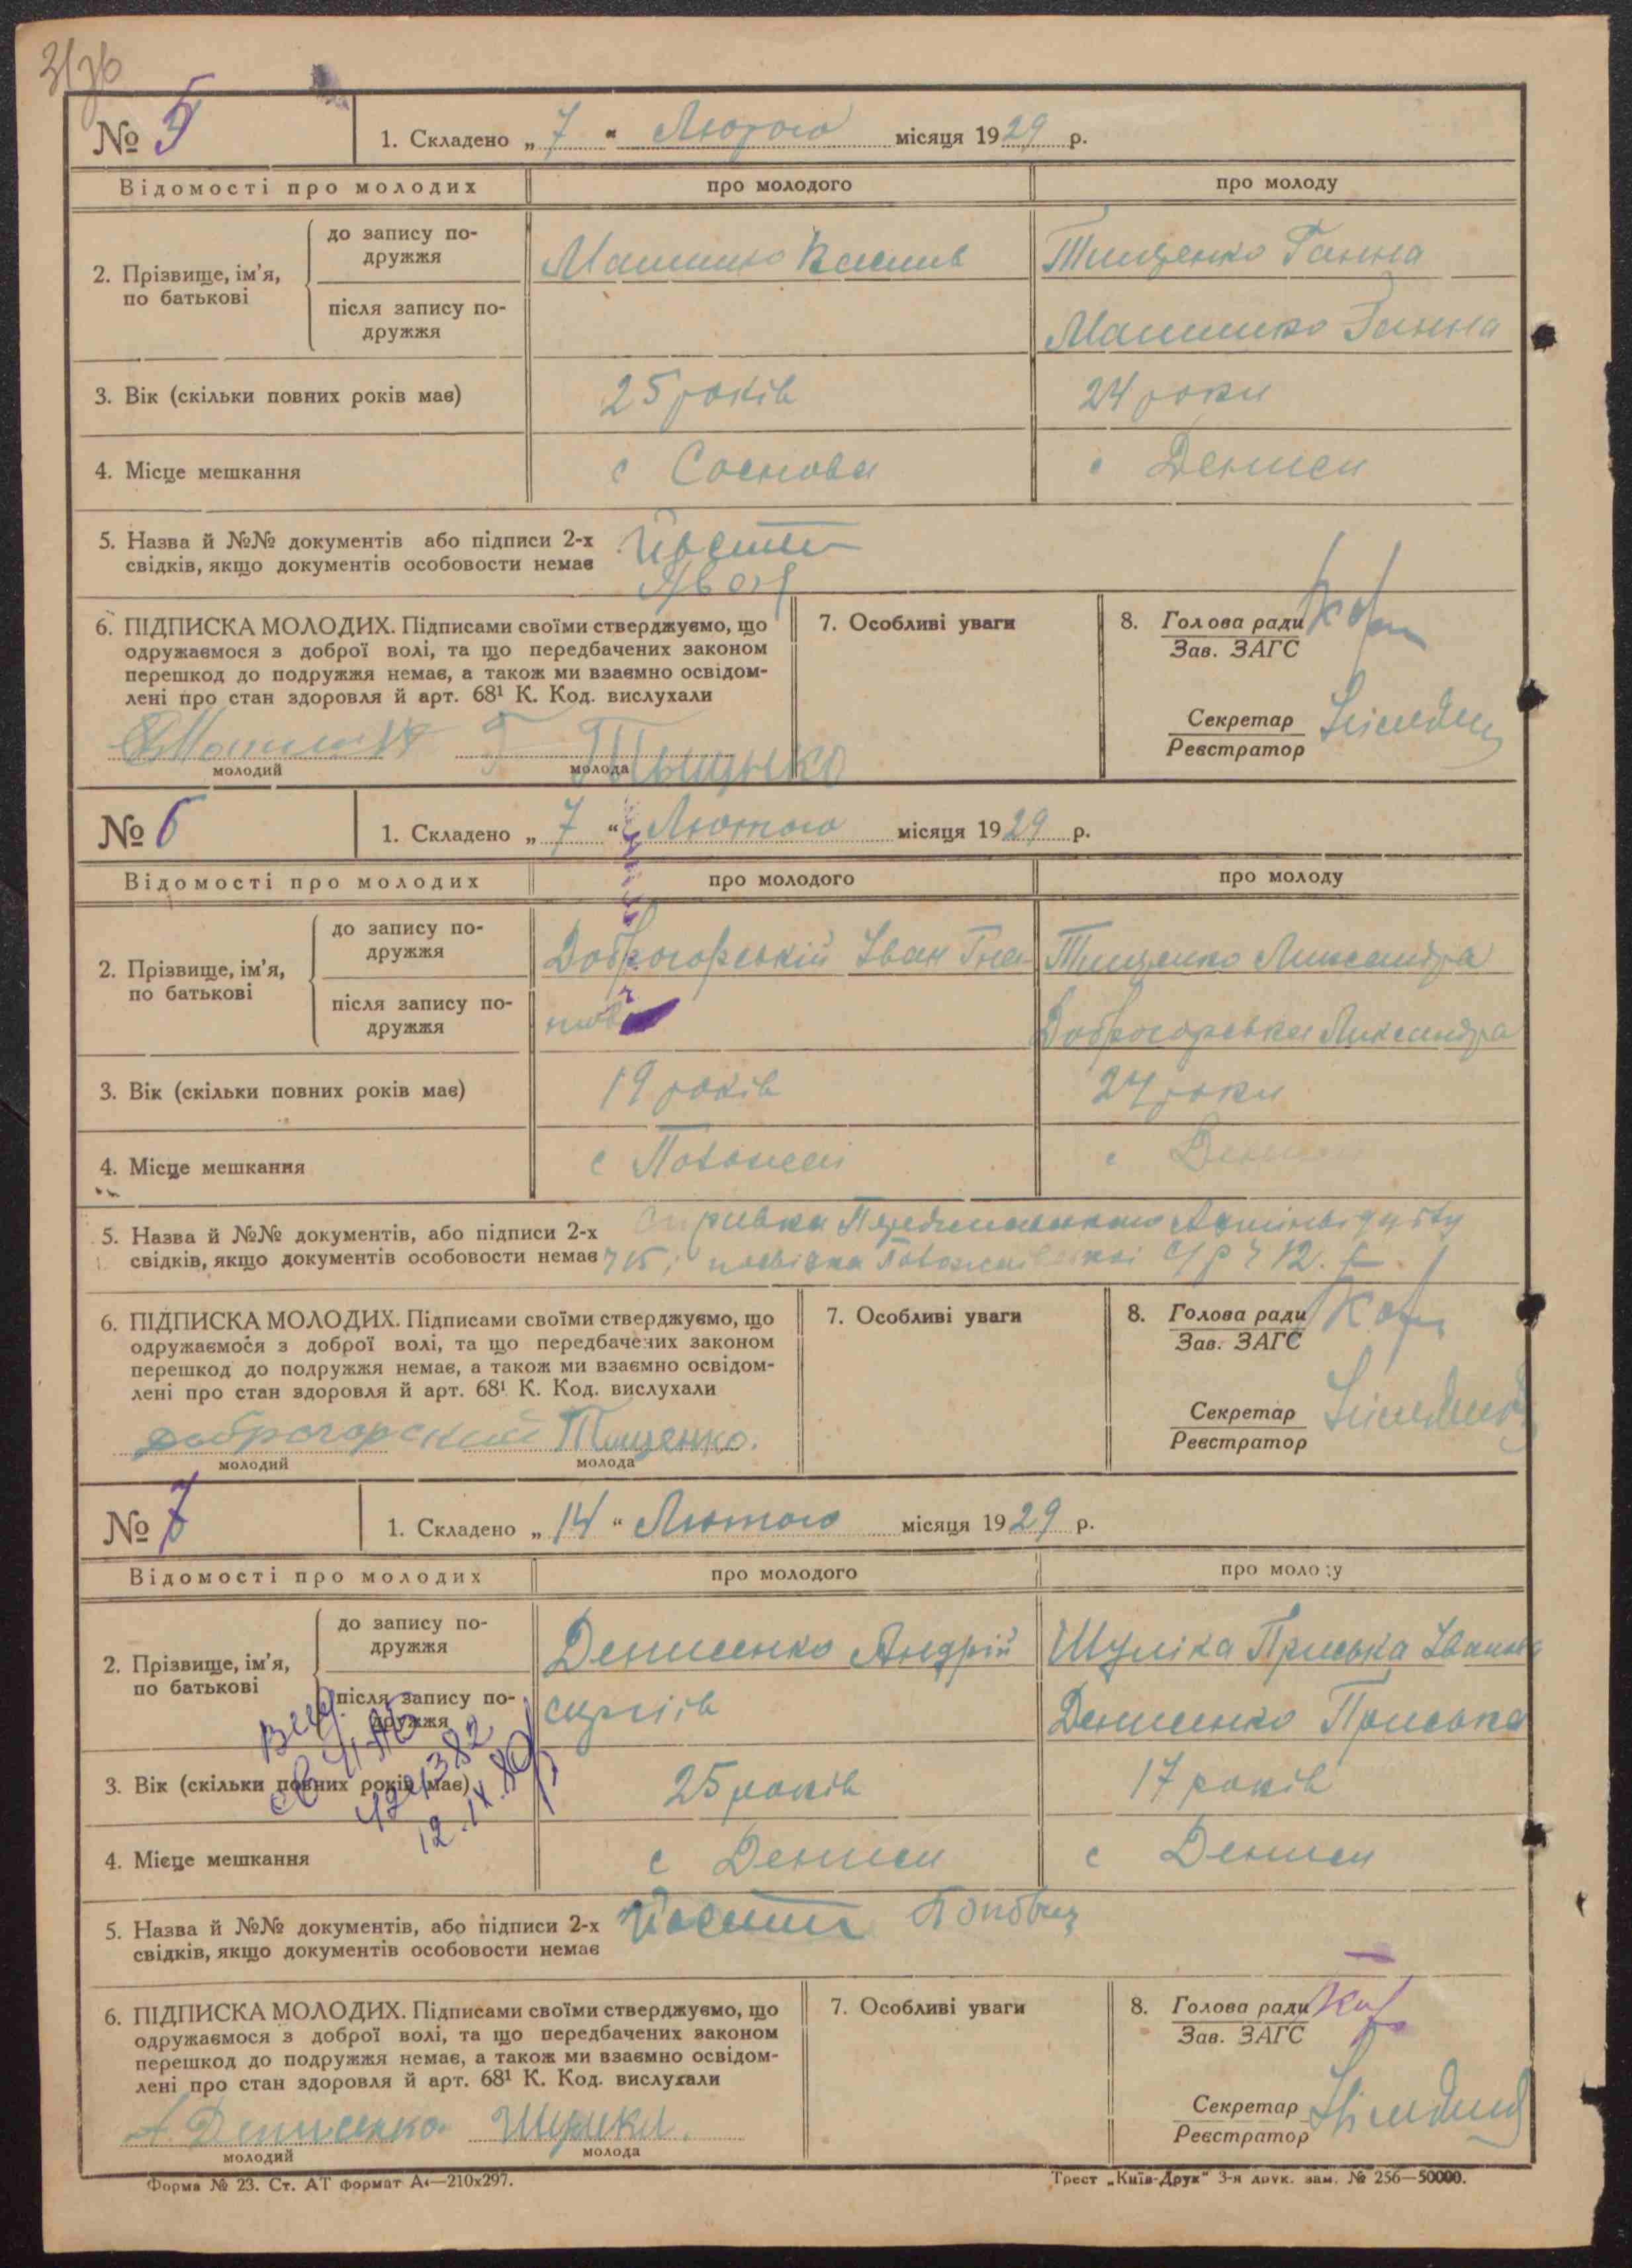 № 5
1. Складено „ 7 “ Лютого місяця 1929 р.
Відомості про молодих про молодого про молоду
2. Прізвище, ім’я, по батькові
до запису подружжя Машинко Василь Тищенко Ганна
після запису подружжя Машинко Ганна
3. Вік (скільки повних років має) 25 років 24 роки
4. Місце мешкання с Соснова с Дениси
5. Назва й №№ документів або підписи 2-х
свідків, якщо документів особовости немає
6. ПІДПИСКА МОЛОДИХ. Підписами своїми стверджуємо, що
одружаємося з доброї волі, та що передбачених законом
перешкод до подружжя немає, а також ми взаємно освідом-
лені про стан здоровля й арт. 68¹ К. Код. вислухали
молодий молода
7. Особливі уваги
8. Голова ради
Зав. ЗАГС
Секретар
Реєстратор
№ 6
1. Складено „ 7 “ Лютого місяця 1929 р.
Відомості про молодих про молодого про молоду
2. Прізвище, ім’я, по батькові
до запису подружжя Доброгорській Іван Гна- Тищенко Ликсандра
після запису подружжя Доброгорська Ликсандра
3. Вік (скільки повних років має) 19 років 24 роки
4. Місце мешкання с Положаї с Дениси
5. Назва й №№ документів, або підписи 2-х
свідків, якщо документів особовости немає
6. ПІДПИСКА МОЛОДИХ. Підписами своїми стверджуємо, що
одружаємося з доброї волі, та що передбачених законом
перешкод до подружжя немає, а також ми взаємно освідом-
лені про стан здоровля й арт. 68¹ К. Код. вислухали
Доброгорский Тищенко.
молодий молода
7. Особливі уваги
8. Голова ради
Зав. ЗАГС
Секретар
Реєстратор
№ 7
1. Складено „ 14 “ Лютого місяця 1929 р.
Відомості про молодих про молодого про молоду
2. Прізвище, ім’я, по батькові
до запису подружжя Денисенко Андрій Шуліка Приська Іванівна
після запису подружжя Сиргіїв Денисенко Приська
3. Вік (скільки повних років має) 25 років 17 років
4. Місце мешкання с Дениси с Дениси
5. Назва й №№ документів, або підписи 2-х
свідків, якщо документів особовости немає
6. ПІДПИСКА МОЛОДИХ. Підписами своїми стверджуємо, що
одружаємося з доброї волі, та що передбачених законом
перешкод до подружжя немає, а також ми взаємно освідом-
лені про стан здоровля й арт. 68¹ К. Код. вислухали
А. Денисенко
молодий молода
7. Особливі уваги
8. Голова ради
Зав. ЗАГС
Секретар
Реєстратор
Форма № 23. Ст. АТ формат А₄—210х297.
Трест „Київ-Друк“ 3-я друк. зам. № 256—50000.